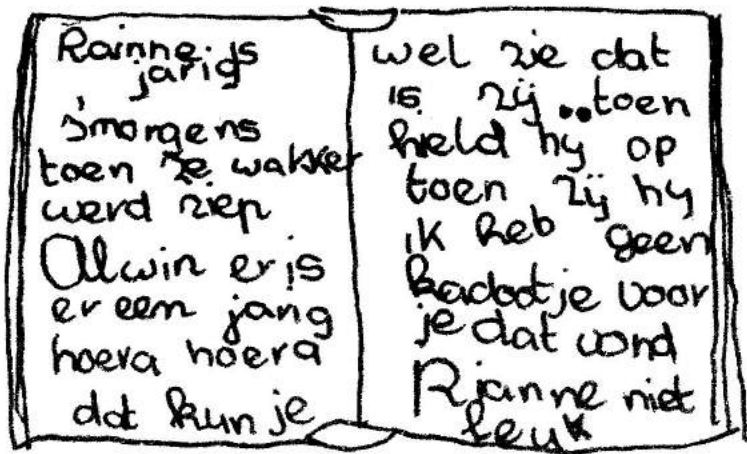 Rainne is
jarig
s'morgens
toen ze wakker
werd riep
Alwin er is
er een jang
hoera hoera
dat kun je
wel zie dat
is zij..toen
hield hy op
toen zij hy
ik heb geen
kadootje voor
je dat vond
Rjanne niet
leuk